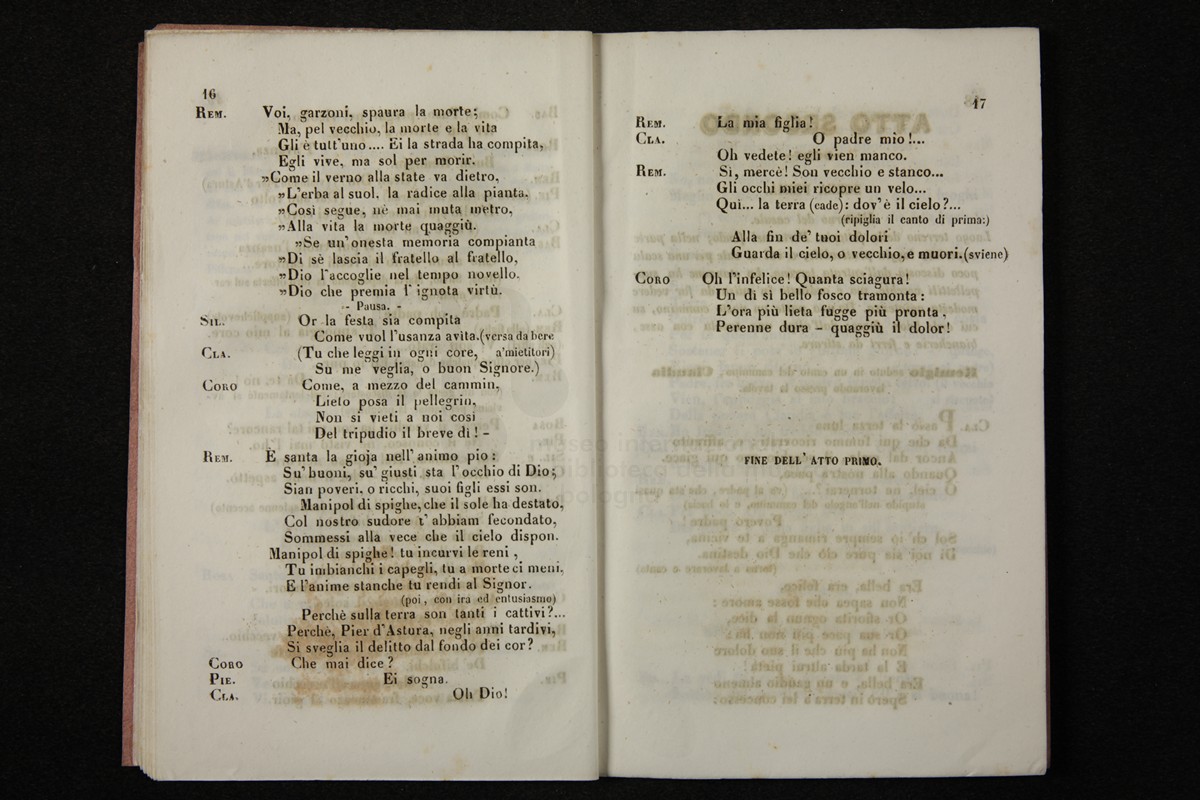 16
REM. Voi, garzoni, spaura la morte;
Ma, pel vecchio, la morte e la vita
Gli è tutt'uno.... Ei la strada ha compita,
Egli vive, ma sol per morir.
»Come il verno alla state va dietro,
»L'erba al suol, la radice alla pianta,
»Così segue, nè mai muta metro,
»Alla vita la morte quaggiù.
»Se un'onesta memoria compianta
»Di sè lascia il fratello al fratello,
»Dio l'accoglie nel tempo novello,
»Dio che premia l'ignota virtù.
- Pausa. -
SIL. Or la festa sia compita
Come vuol l'usanza avita.(versa da bere
CLA. (Tu che leggi in ogni core, a'mietitori)
Su me veglia, o buon Signore.)
CORO Come, a mezzo del cammin,
Lieto posa il pellegrin,
Non si vieti a noi così
Del tripudio il breve dì! -
REM. È santa la gioja nell'animo pio:
Su' buoni, su' giusti sta l'occhio di Dio;
Sian poveri, o ricchi, suoi figli essi son.
Manipol di spighe, che il sole ha destato,
Col nostro sudore t'abbiam fecondato,
Sommessi alla vece che il cielo dispon.
Manipol di spighe! tu incurvi le reni,
Tu imbianchi i capegli, tu a morte ci meni,
E l'anime stanche tu rendi al Signor.
(poi, con ira ed entusiasmo)
Perchè sulla terra son tanti i cattivi?...
Perchè, Pier d'Astura, negli anni tardivi,
Si sveglia il delitto dal fondo dei cor?
CORO Che mai dice?
PIE. Ei sogna.
CLA. Oh Dio!
17
REM. La mia figlia!
CLA. O padre mio!...
Oh vedete! egli vien manco.
REM. Sì, mercè! Son vecchio e stanco...
Gli occhi miei ricopre un velo...
Quì... la terra (cade): dov'è il cielo?...
(ripiglia il canto di prima:)
Alla fin de' tuoi dolori
Guarda il cielo, o vecchio, e muori.(sviene)
CORO Oh l'infelice! Quanta sciagura!
Un dì sì bello fosco tramonta:
L'ora più lieta fugge più pronta,
Perenne dura - quaggiù il dolor!
FINE DELL' ATTO PRIMO.